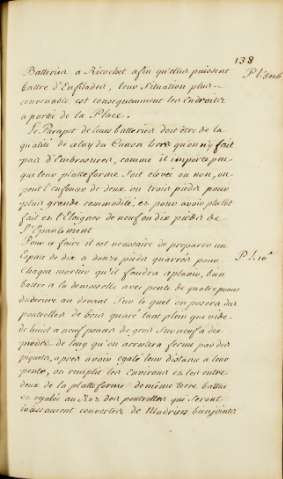 138
Batteries a Ricochet afin qu'elles puissent
battre d'Enfilades, leur Situation plus
convenable est consequemment les Endroits
a portée de la Place.
Le Parapet de leurs batteries doit être de la
qualité de celuy du Canon hors qu'on n'y fait
pas d'Embrasures, comme il importe peu
que leur platteforme soit elevée ou non, on
peut l'enfoncer de deux ou trois pieds pour
plus grande commodité, et pour avoir plutôt
fait en l'Eloigner de neuf ou dix pieds de
l'Epaulement
Pour ce faire il est necessaire de preparer un
Espace de dix a douze pieds quarrés pour
Chaque mortier qu'il faudra aplanir, bien
battre a la demoiselle avec pente de quatre pouces
du derriere au devant Sur le quel on posera des
poutrelles de bois quaré tant plein que vuide
de huit a neuf pouces de gros Sur neuf a dix
pieds de long qu'on arretera ferme par des
piquets, apres avoir egalé leur distance a leur
pente, on remplit les Environs et les entre
deux de la platteforme de même terre battue
et egalée au Rez des poutrelles qui seront
couvertes de Madriers bien joints